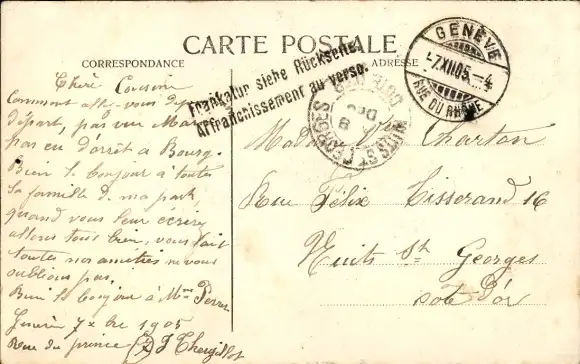 CARTE POSTALE
CORRESPONDANCE
ADRESSE
GENÈVE
-7.XII.05.-4
RUE DU RHÔNE
Frankatur siehe Rückseite.
Affranchissement au verso.
NUITS-ST-GEORGES
CÔTE D'OR
8
DEC
Chère Cousine
Comment allez-vous depuis
départ, pas vu
pas eu d'arrêt à Bourg
Bien le bonjour à toute
la famille de ma part,
quand vous leur écrirez
allons tous bien, vous fait
toutes nos amitiés ne vous
oublions pas,
Bien le bonjour à Mme
Genève 7 Xbre 1905
Rue du prince
Madame Vve Charton
Rue Félix Tisserand 16
Nuits St. Georges
Cote d'or